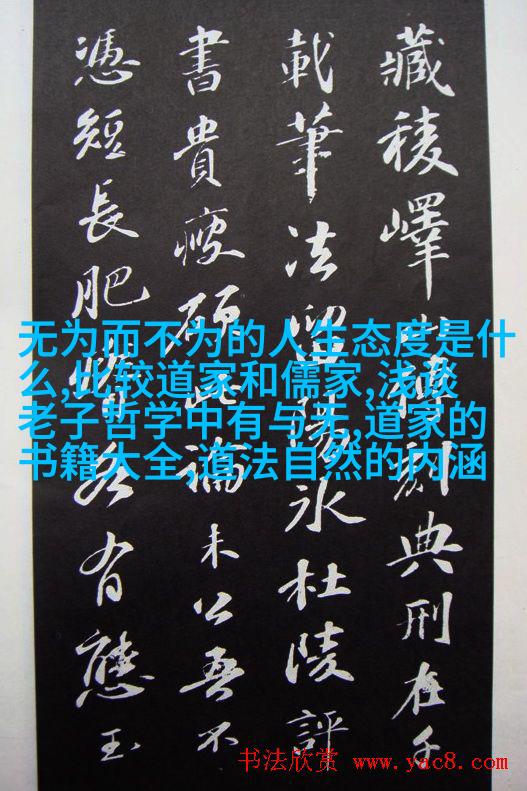 藏稜嶧山傳刻典刑在千
載筆法留陽冰杜陵評
書貴瘦硬此論未公吾不
憑短長肥瘠各有態玉
无为而不为的人生态度是什
么,比较道家和儒家,浅谈
老子哲学中有与无,道家的
书籍大全,道法自然的内涵
书法欣赏 www.yac8.com